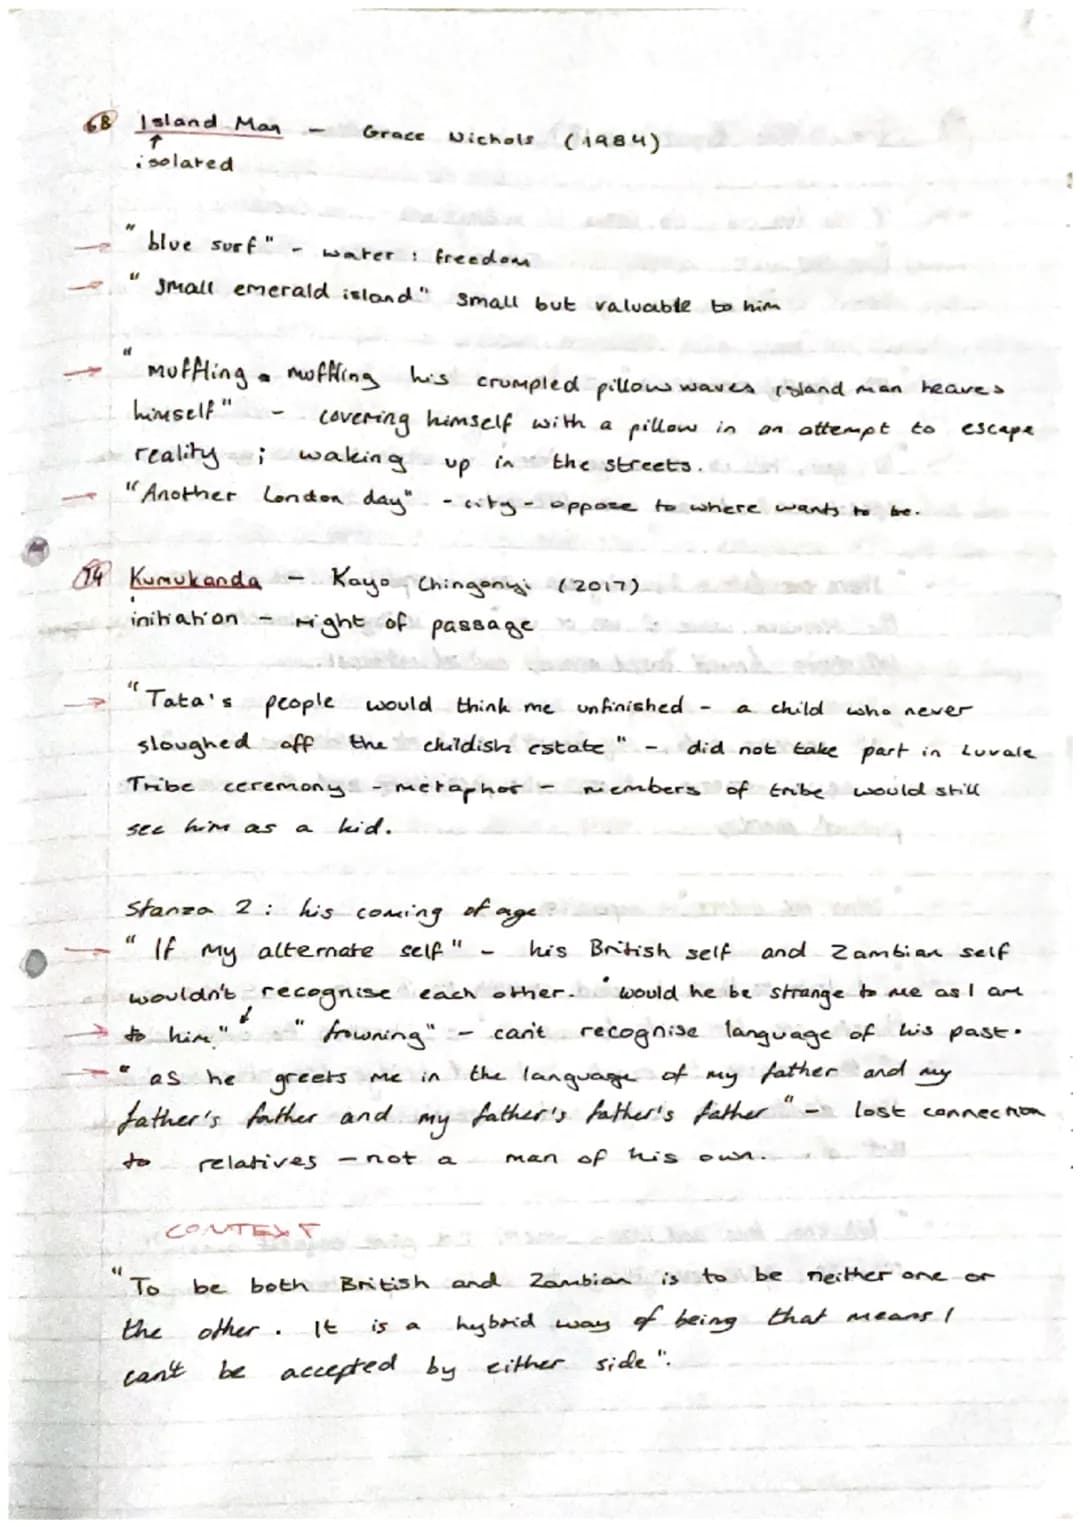 68 Island Man - Grace Nichols (1984)
↑
isolated
→ "blue surf" - water : freedom
→ "small emerald island" small but valuable to him
→ "muffling muffling his crumpled pillow waves island man heaves
himself" - covering himself with a pillow in an attempt to escape
reality ; waking up in the streets.
→ "Another London day" - city - oppose to where wants to be.
74 Kumukanda - Kayo Chingonyi (2017)
initiation - right of passage
→ "Tata's people would think me unfinished - a child who never
sloughed off the childish estate" - did not take part in Luvale
Tribe ceremony - metaphor - members of tribe would still
see him as a kid.
Stanza 2 : his coming of age
→ "If my alternate self" - his British self and Zambian self
wouldn't recognise each other. "would he be strange to me as I am
→ to him" ↓ "frowning" - can't recognise language of his past.
→ "as he greets me in the language of my father and my
father's father and my father's father's father" - lost connection
to relatives - not a man of his own.
CONTEXT
"To be both British and Zambian is to be neither one or
the other. It is a hybrid way of being that means I
can't be accepted by either side".